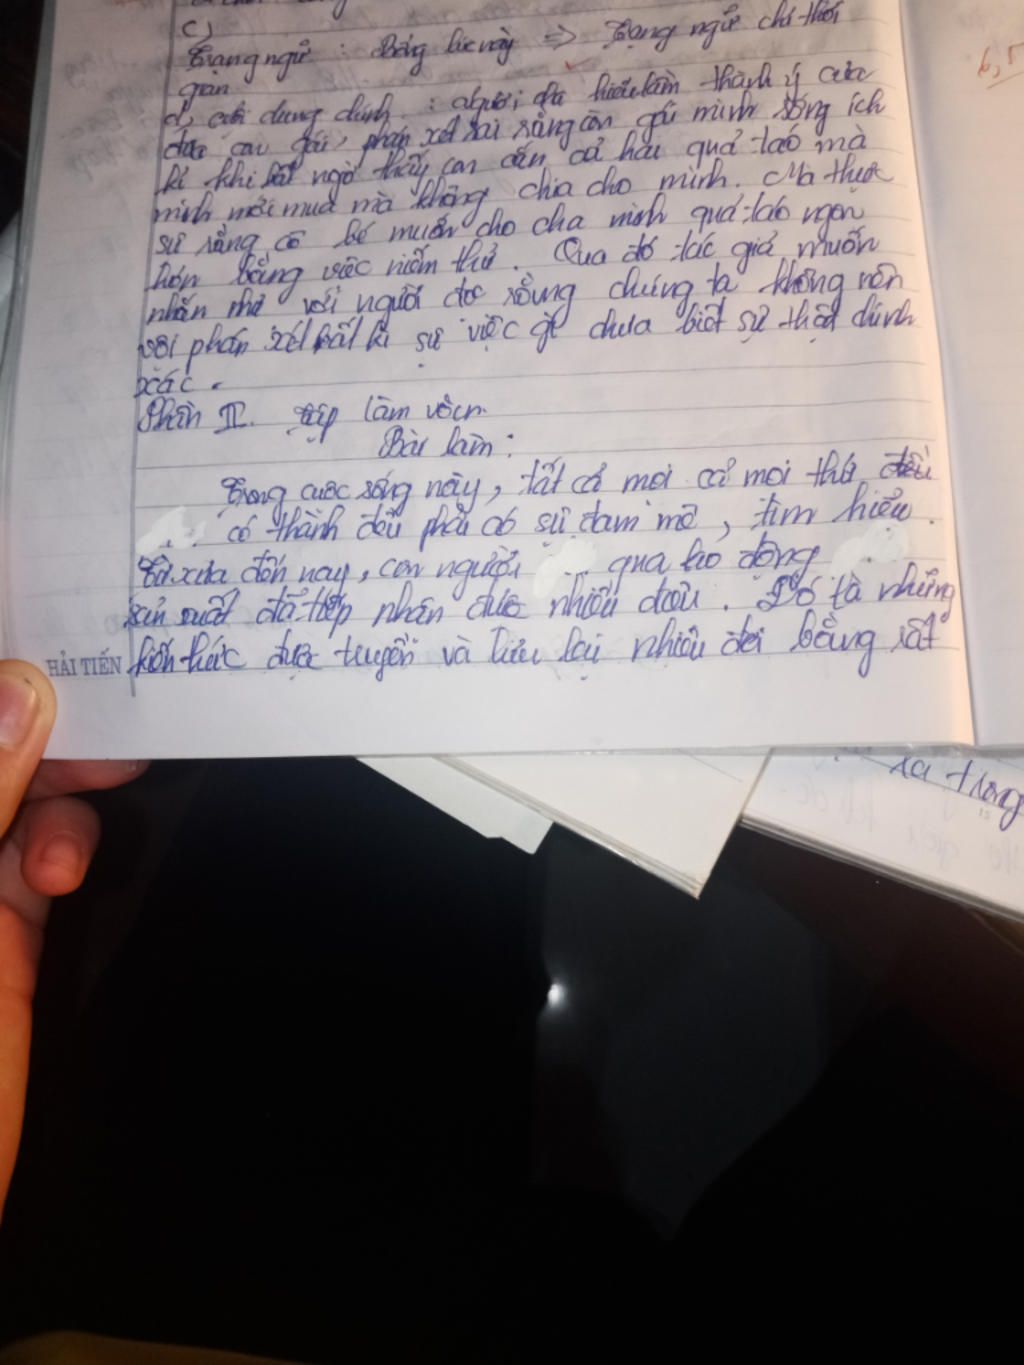 c)
Trạng ngữ : Đúng lúc này => Trạng ngữ chỉ thời
gian
d, nội dung chính : Người cha hiểu lầm thành ý của
đứa con gái, phán xét sai rằng con gái mình sống ích
kỉ khi bất ngờ thấy con cắn cả hai quả táo mà
mình mới mua mà không chia cho mình. Mà thực
sự rằng cô bé muốn cho cha mình quả táo ngon
hơn bằng việc niếm thử. Qua đó tác giả muốn
nhắn nhủ với người đọc rằng chúng ta không nên
vội phán xét bất kì sự việc gì chưa biết sự thật chính
xác.
Phần II. Tập làm văn.
Bài làm:
Trong cuộc sống này, tất cả mọi cả mọi thứ đều
có thành đều phải có sự đam mê, tìm hiểu.
Từ xưa đến nay, con người qua lao động
sản xuất đã tiếp nhận được nhiều điều. Đó là những
kiến thức được truyền và lưu lại nhiều đời bằng rất
HẢI TIẾN
xa trong